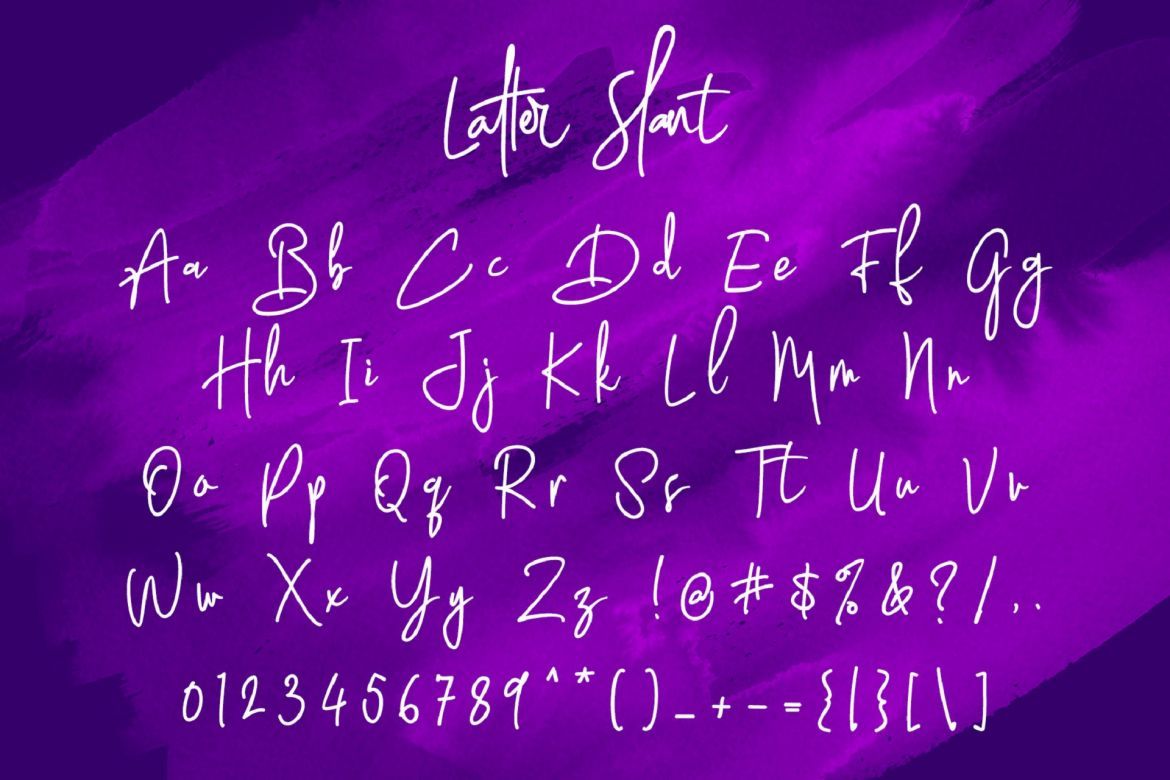 Latter Slant
Aa Bb Cc Dd Ee Ff Gg
Hh Ii Jj Kk Ll Mm Nn
Oo Pp Qq Rr Ss Tt Uu Vv
Ww Xx Yy Zz !@#$%&?/,.
0123456789^*()_+-={|}[\]